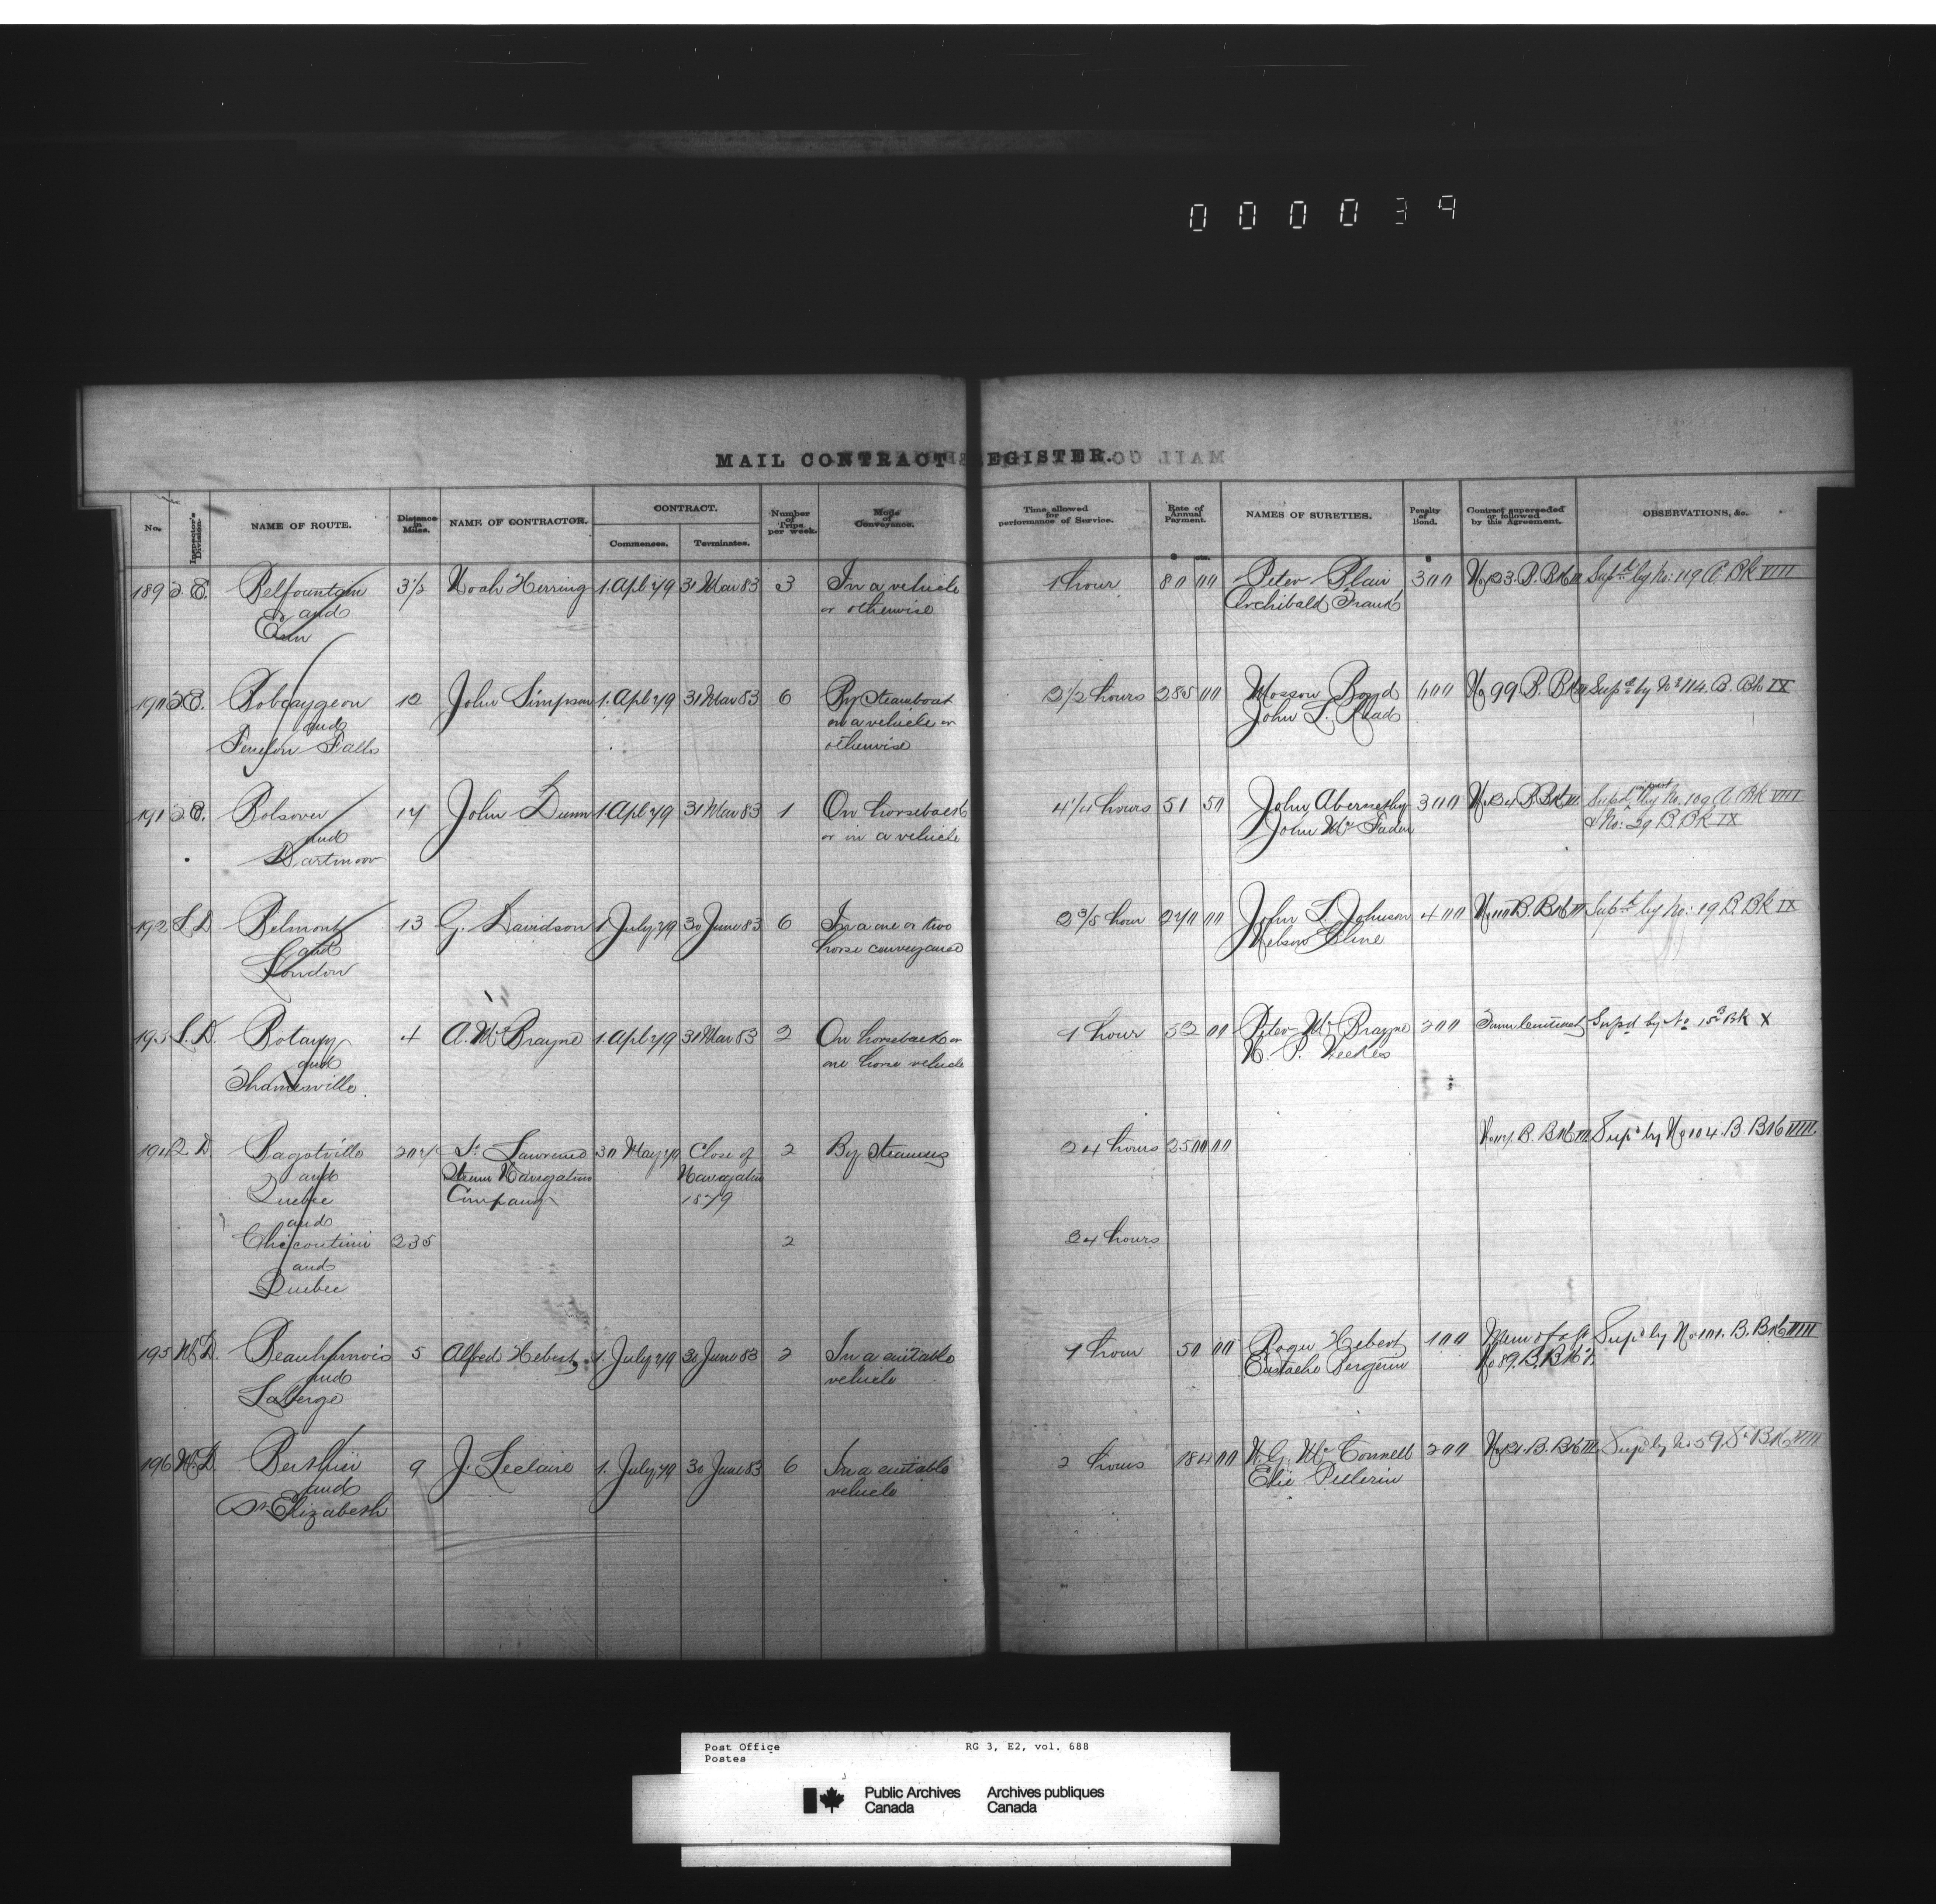 000039
MAIL CONTRACT REGISTER.
No. Inspector's Division. NAME OF ROUTE. Distance in Miles. NAME OF CONTRACTOR. CONTRACT. Commences. Terminates. Number of Trips per week. Mode of Conveyance. Time allowed for performance of Service. Rate of Annual Payment. $ cts. NAMES OF SURETIES. Penalty of Bond. $ Contract superseded or followed by this Agreement. OBSERVATIONS, &c.
189 Belfountain 3 1/2 Noah Herring 1. Apl 79 31 Mar 83 3 In a vehicle 1 hour 80 00 Peter Blair 300 Supd. by No: 119 A. Bk VIII
and or otherwise Archibald
Erin
190 Bobcaygeon 12 John Simpson 1. Apl 79 31 Mar 83 6 By Steamboat 2 1/2 hours 285 00 Mossom Boyd 600 No 99. B. Bk Supd. by No 114. B. Bk IX
and in a vehicle or John L. Read
Fenelon Falls otherwise
191 Bolsover 17 John Dunn 1. Apl 79 31 Mar 83 1 On horseback 4 1/4 hours 51 50 John Abernethy 300 Supd. in part by No. 109 A. Bk VIII
and or in a vehicle John McFaden & No: 29 B. Bk IX
Dartmoor
192 L. D. Belmont 13 G. Davidson 1 July 79 30 June 83 6 In a one or two 2 3/5 hour 270 00 John L. Johnson 400 Supd. by No: 19 B. Bk IX
and horse conveyance Nelson Cline
London
193 L. D. Botany 4 A. McBrayne 1. Apl 79 31 Mar 83 2 On horseback or 1 hour 52 00 Peter McBrayne 200 Supd by No 15 Bk X
and one horse vehicle
Thamesville.
194 Q D Bagotville St. Lawrence 30 May 79 Close of 2 By Steamers 24 hours 2500 00 Supd by No 104. B. Bk VIII.
and Steam Navigation Navigation
Quebec Company 1879
and
Chicoutimi 235 2 34 hours
and
Quebec
195 M. D. Beauharnois 5 Alfred Hebert 1. July 79 30 June 83 2 In a suitable 1 hour 50 00 Hebert 100 Supd by No 101. B. Bk VIII
and vehicle Eustache Bergevin No 89. B. Bk
Laberge
196 M. D. Berthier 9 J. Leclaire 1. July 79 30 June 83 6 In a suitable 2 hours 184 00 McConnell 200 Supd by No 59. Bk VIII
and vehicle Elie Pellerin
St Elizabeth
Post Office RG 3, E2, vol. 688
Postes
Public Archives Archives publiques
Canada Canada